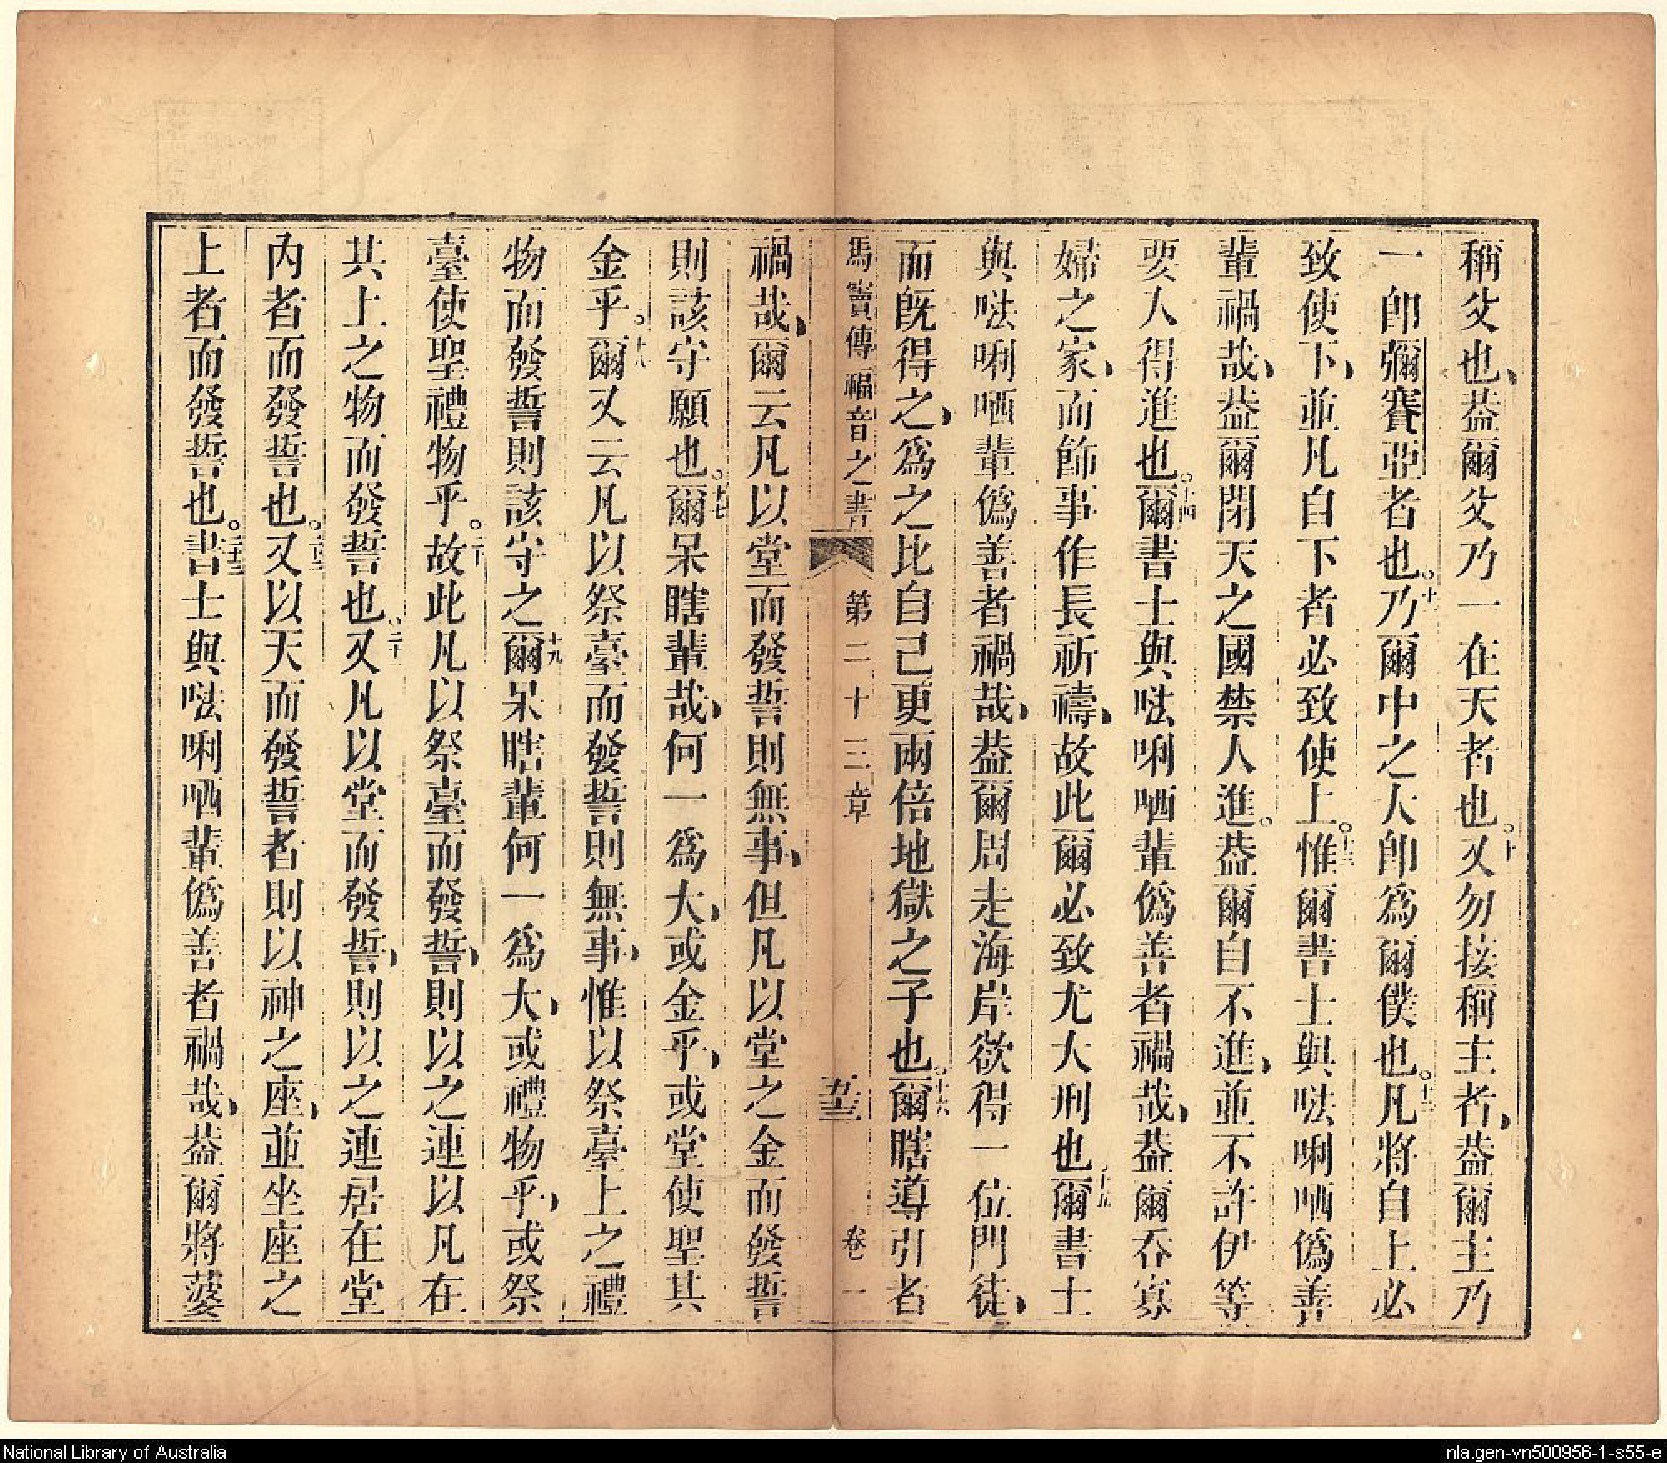 稱父也、葢爾父乃一在天者也。十又勿接稱主者、葢爾主乃
一卽彌賽亞者也。十一乃爾中之大卽爲爾僕也。十二凡將自上必
致使下、並凡自下者必致使上。十三惟爾書士與𠵽唎哂僞善
輩禍哉、葢爾閉天之國禁人進。葢爾自不進、並不許伊等
要人得進也。十四爾書士與𠵽唎哂輩僞善者禍哉、葢爾吞寡
婦之家、而飾事作長祈禱、故此爾必致尤大刑也十五爾書士
與𠵽唎哂輩僞善者禍哉、葢爾周走海岸欲得一位門徒、
而旣得之、爲之比自己更兩倍地獄之子也。十六爾瞎導引者
馬竇傳福音之書 第二十三章 五十三 卷一
禍哉、爾云凡以堂而發誓則無事、但凡以堂之金而發誓
則該守願也。十七爾呆瞎輩哉、何一爲大、或金乎、或堂使聖其
金乎。十八爾又云凡以祭臺而發誓則無事、惟以祭臺上之禮
物而發誓則該守之十九爾呆瞎輩何一爲大、或禮物乎、或祭
臺使聖禮物乎。二十故此凡以祭臺而發誓、則以之連以凡在
共上之物而發誓也。二十一又凡以堂而發誓、則以之連居在堂
內者而發誓也。二十二又以天而發誓者則以神之座、並坐座之
上者而發誓也。二十三書士與𠵽唎哂輩僞善者禍哉、葢爾將薆
National Library of Australia
nla.gen-vn500956-1-s55-e